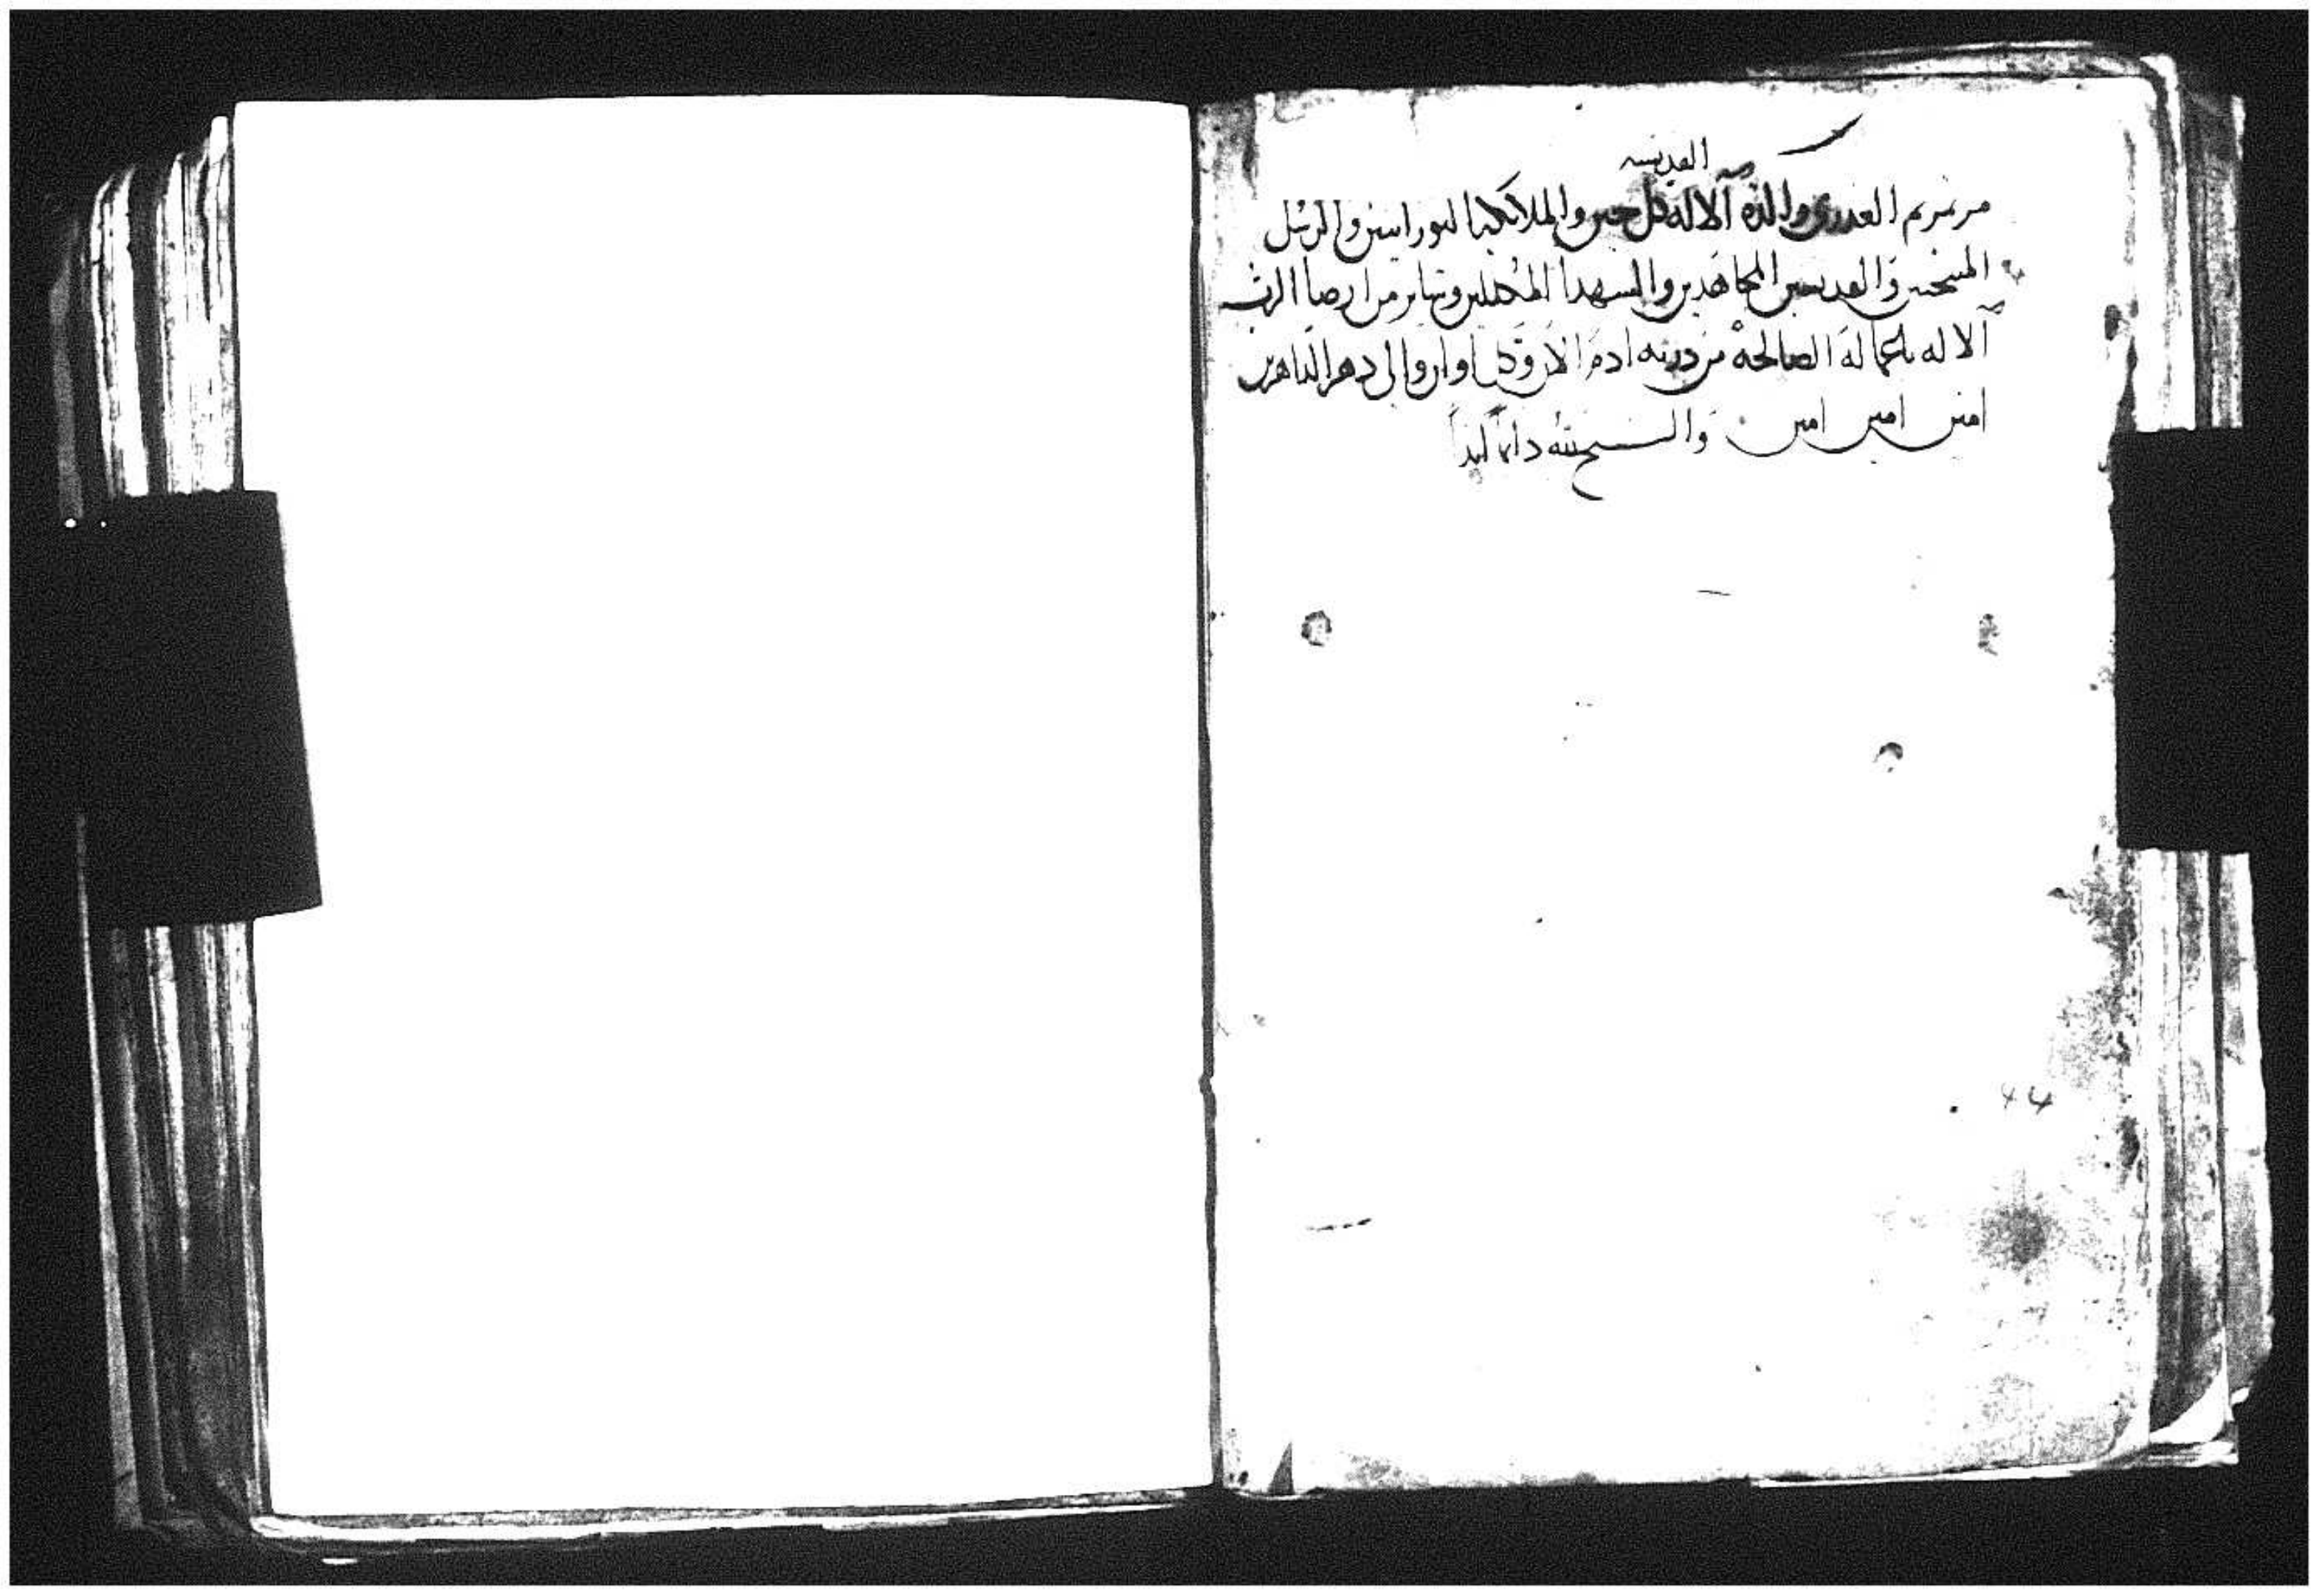 القديسه
مرتمريم العدرى والدة آلاله كل حين والملايكه النورانيين والرسل
المنتخبين والقديسين المجاهدين والشهدا المكللين وساير من ارضا الرب
آلاله باعماله الصالحة من درية ادم الان وكل اوان والى دهر الداهرين
امين امين امين والسبح لله دايماً ابداً